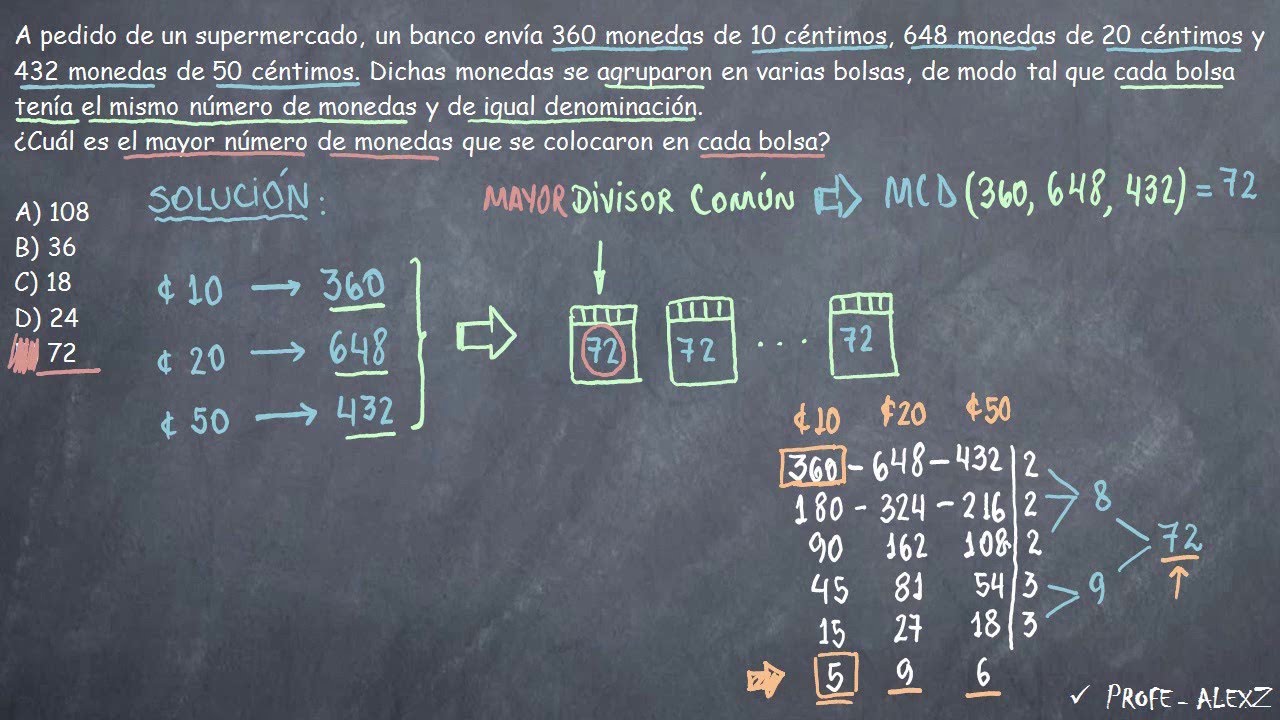 A pedido de un supermercado, un banco envía 360 monedas de 10 céntimos, 648 monedas de 20 céntimos y
432 monedas de 50 céntimos. Dichas monedas se agruparon en varias bolsas, de modo tal que cada bolsa
tenía el mismo número de monedas y de igual denominación.
¿Cuál es el mayor número de monedas que se colocaron en cada bolsa?
A) 108
B) 36
C) 18
D) 24
72
SOLUCIÓN:
¢ 10 → 360
¢ 20 → 648
¢ 50 → 432
MAYOR DIVISOR COMÚN ⇨ MCD (360, 648, 432) = 72
72 72 .... 72
¢10 ¢20 ¢50
360 - 648 - 432 | 2
180 - 324 - 216 | 2
90 162 108 | 2
45 81 54 | 3
15 27 18 | 3
5 9 6
8
9
72
✓ PROFE - ALEXZ